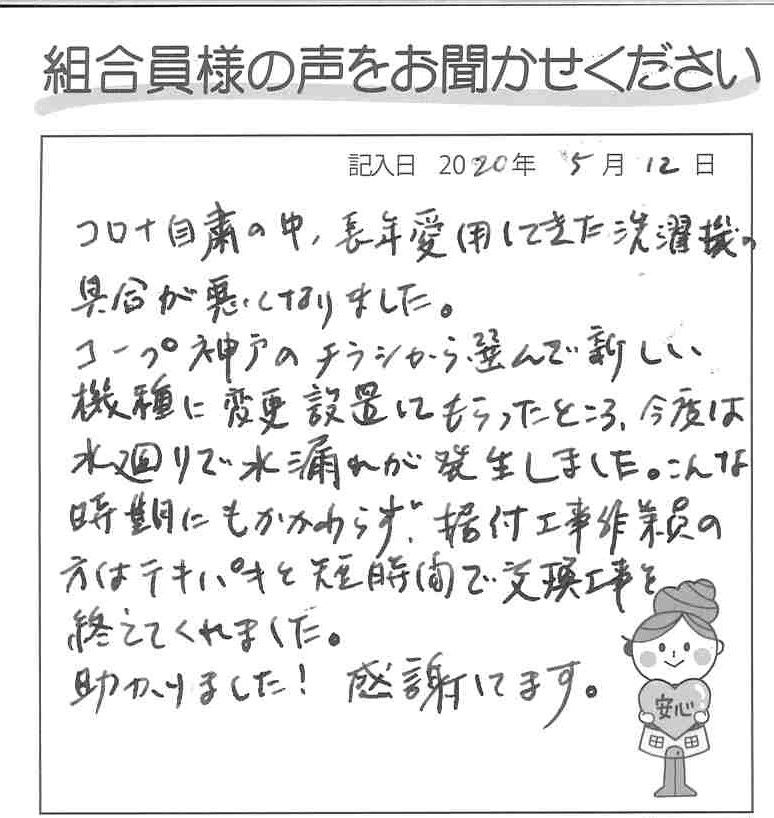 組合員様の声をお聞かせください
記入日 2020年 5月12日
コロナ自粛の中、長年愛用してきた洗濯機の
具合が悪くなりました。
コープ神戸のチラシから選んで新しい
機種に変更設置してもらったところ、今度は
水廻りで水漏れが発生しました。こんな
時期にもかかわらず、据付工事作業員の
方はテキパキと短時間で交換工事を
終えてくれました。
助かりました！感謝してます。
安心